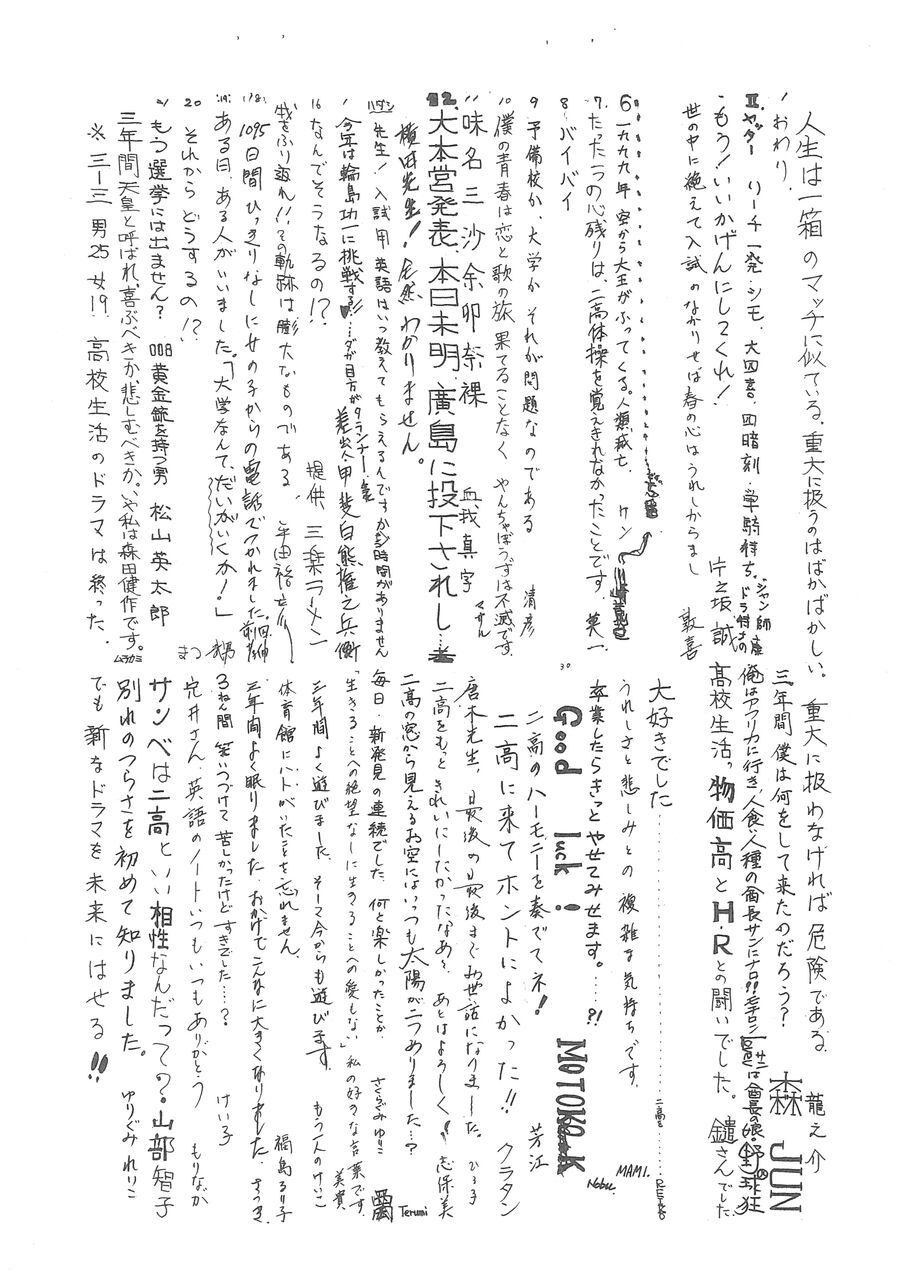 人生は一箱のマッチに似ている。重大に扱うのはばかばかしい。重大に扱わなければ危険である。 龍之介
1 おわり
三年間 僕は何をして来たのだろう? 森 JUN
II. ヤッター リーチ一発・シモ、大四喜、四暗刻・単騎待ち、ドラ付きの ジャン師 庵
俺はアフリカに行き、人食い人種の酋長サンにナロ!!
は酋長の娘・野球狂
もう!いいかげんにしてくれ! 片之坂 誠
高校生活。物価高とH・Rとの闘いでした。 鑓さんでした
世の中に絶えて入試のなかりせば春の心はうれしからまし 敦喜
大好きでした
二高 REIKO
6 一九九九年 空から大王がふってくる。人類滅亡 ケン
うれしさと悲しみとの複雑な気持ちです。 MAMI.
7. たった一つの心残りは、二高体操を覚えきれなかったことです。 英一
卒業したらきっとやせてみせます。……?! Nobu.
8 バイバイ
Good luck! MOTOKO.K
9 予備校か、大学か それが問題なのである 清彦
二高のハーモニーを奏でてネ! 芳江
10 僕の青春は恋と歌の旅 果てることなく やんちゃぼうずは不滅です。 マサル
二高に来てホントによかった!! クラタン
11 味名三沙余卯奈裸 血我真字
唐木先生、最後の最後までお世話になりました。 ひろ子
12. 大本営発表、本日未明、廣島に投下されし…
二高をもっときれいにしたかったなあ? あとはよろしく! 志保美
横田先生!全然わかりません。
二高の窓から見えるお空にはいつも太陽が二つありました…? Terumi
先生!入試用英語はいつ教えてもらえるんですか 時間がありません
毎日、新発見の連続でした。何と楽しかったことか さくらぐみ ゆり
今年は輪島功一に挑戦する…ダが目方が 差出人・甲斐白熊権之兵衛
「生きることへの絶望なしに生きることへの愛もない」私の好きな言葉です。 美貴
16 なんでそうなるの!? 提供 三楽ラーメン
三年間よく遊びました。そして今からも遊びます。 もう一人のけいこ
我をふり返れ!!その軌跡は膨大なものである。 平田裕
体育館にハトがいたことを忘れません 福島るり子
18. 1095日間ひっきりなしに女の子からの電話でつかれました
三年間よく眠りました。おかげでこんなに大きくなりました。 さつき
19. ある日、ある人がいいました。「大学なんて、だいがいくか!」
3ねん間笑いつづけて苦しかったけどすきでした…? けい子
20 それからどうするの!? まつ
完井さん、英語のノートいつもいつもありがとう もりなか
21 もう選挙には出ません? 008 黄金銃を持つ男 松山英太郎
サンペは二高といい相性なんだっての。山部智子
三年間天皇と呼ばれ、喜ぶべきか、悲しむべきか。いや私は森田健作です。
別れのつらさを初めて知りました。 ゆりぐみ れいこ
※三ー三 男25 女19 高校生活のドラマは終った。
でも新なドラマを未来にはせる!!